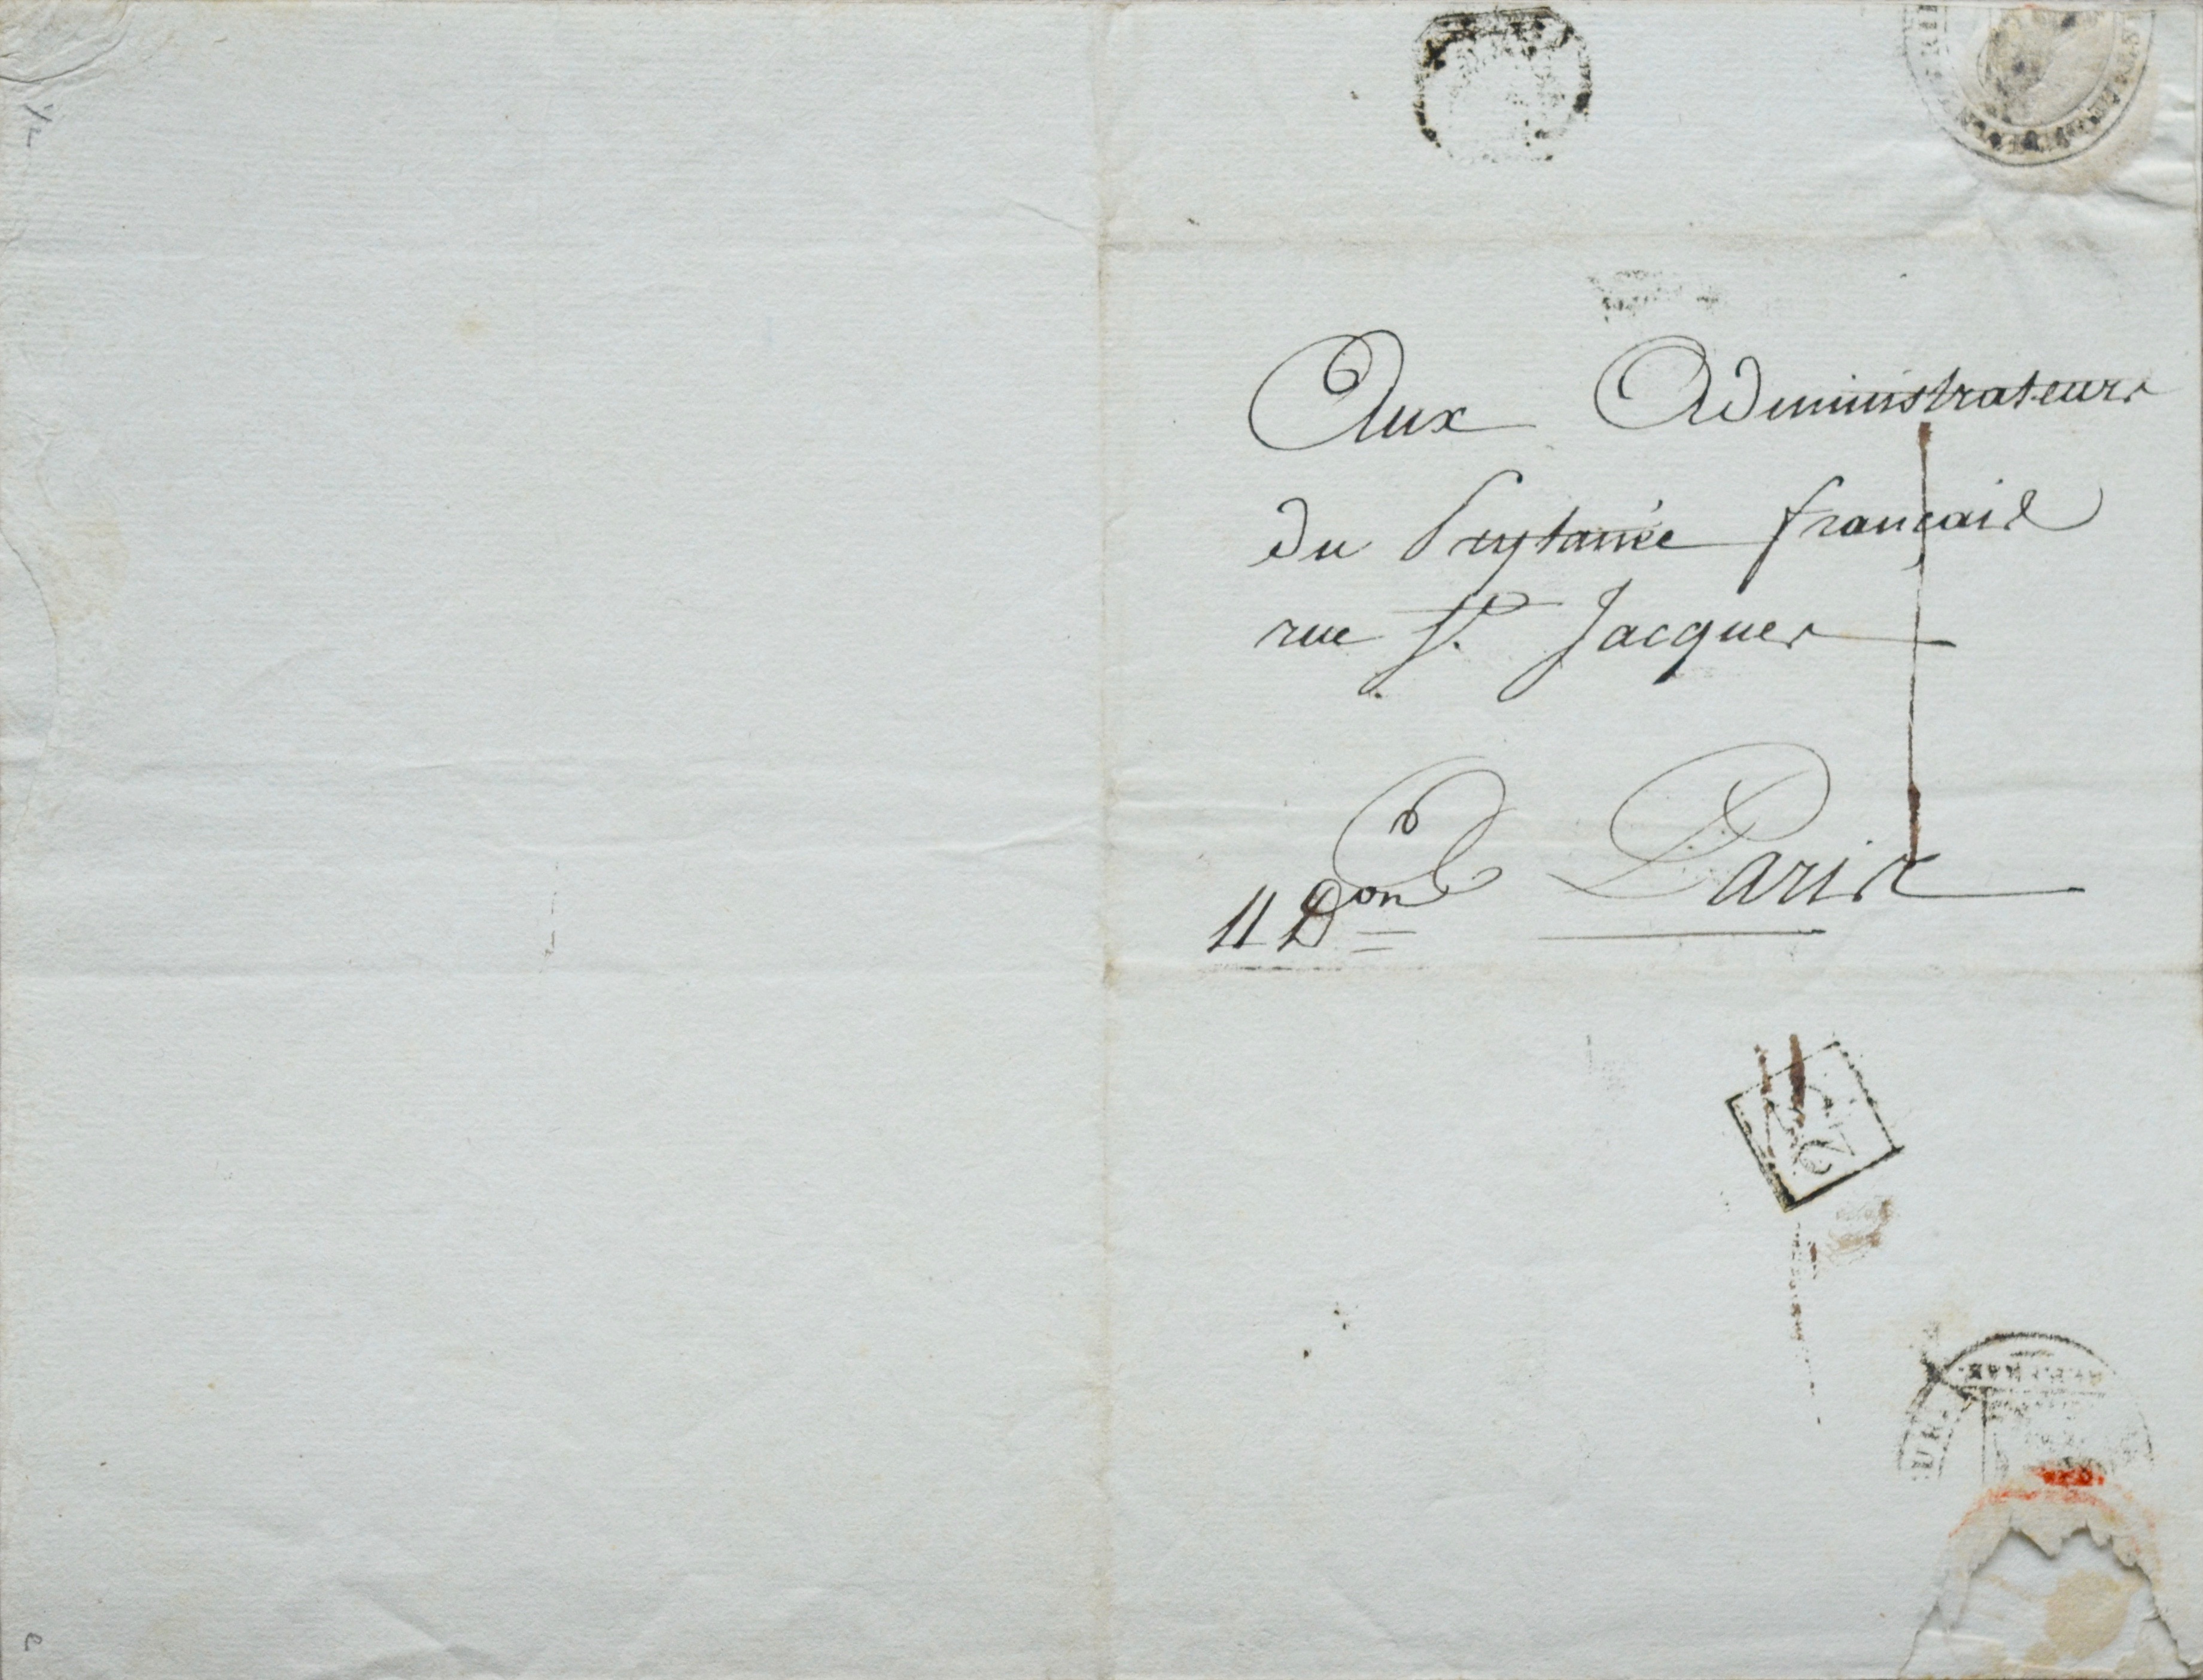 Aux Administrateurs
du Prytanée français
rue St. Jacques
à Paris
11 Don